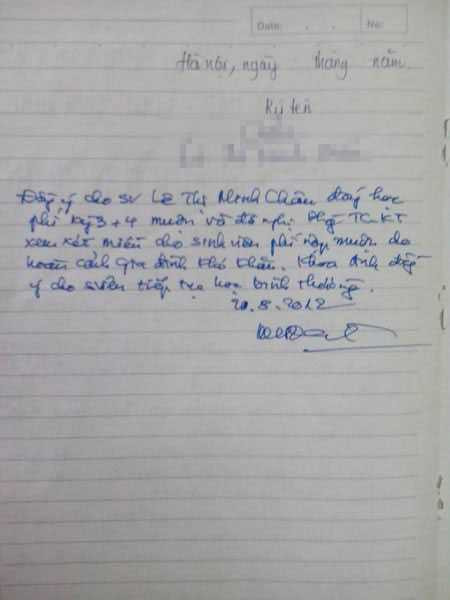 Date: . . No:
Hà nội, ngày tháng năm
Ký tên
Đồng ý cho SV Lê Thị Minh Châu đóng học
phí kỳ 3 + 4 muộn và đề nghị Phòng TC KT
xem xét miễn cho sinh viên phí nộp muộn do
hoàn cảnh gia đình khó khăn. Khoa đồng
ý cho sviên tiếp tục học bình thường.
20.8.2012